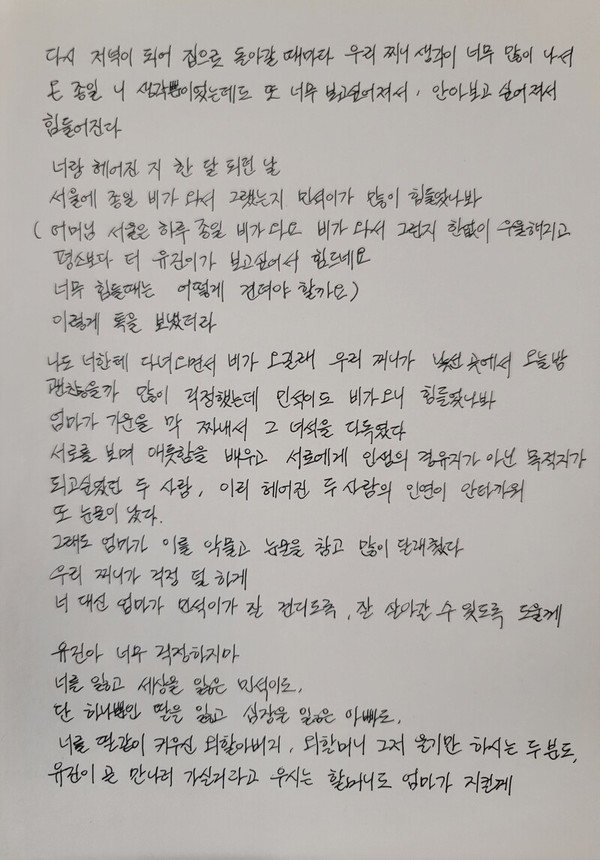 다시 저녁이 되어 집으로 돌아갈 때마다 우리 찌니 생각이 너무 많이 나서
온 종일 니 생각뿐이었는데도 또 너무 보고싶어져서, 안아보고 싶어져서
힘들어진다
너랑 헤어진 지 한 달 되던 날
서울에 종일 비가 와서 그랬는지 민석이가 많이 힘들었나봐
( 어머님 서울은 하루 종일 비가와요 비가와서 그런지 한없이 우울해지고
평소보다 더 유진이가 보고싶어서 힘드네요
너무 힘들때는 어떻게 견뎌야 할까요)
이렇게 톡을 보냈더라
나도 너한테 다녀오면서 비가 오길래 우리 찌니가 낯선 곳에서 오늘밤
괜찮을까 많이 걱정했는데 민석이도 비가오니 힘들었나봐
엄마가 기운을 막 짜내서 그 녀석을 다독였다
서로를 보며 애틋함을 배우고 서로에게 인생의 경유지가 아닌 목적지가
되고싶었던 두 사람, 이리 헤어진 두사람의 인연이 안타까워
또 눈물이 났다.
그래도 엄마가 이를 악물고 눈물을 참고 많이 달래줬다
우리 찌니가 걱정 덜 하게
너 대신 엄마가 민석이가 잘 견디도록, 잘 살아갈 수 있도록 도울께
유진아 너무 걱정하지마
너를 잃고 세상을 잃은 민석이도,
단 하나뿐인 딸을 잃고 심장을 잃은 아빠도,
너를 딸같이 키우신 외할아버지, 외할머니 그저 울기만 하시는 두 분도,
유진이 곧 만나러 가실거라고 우시는 할머니도 엄마가 지킬게